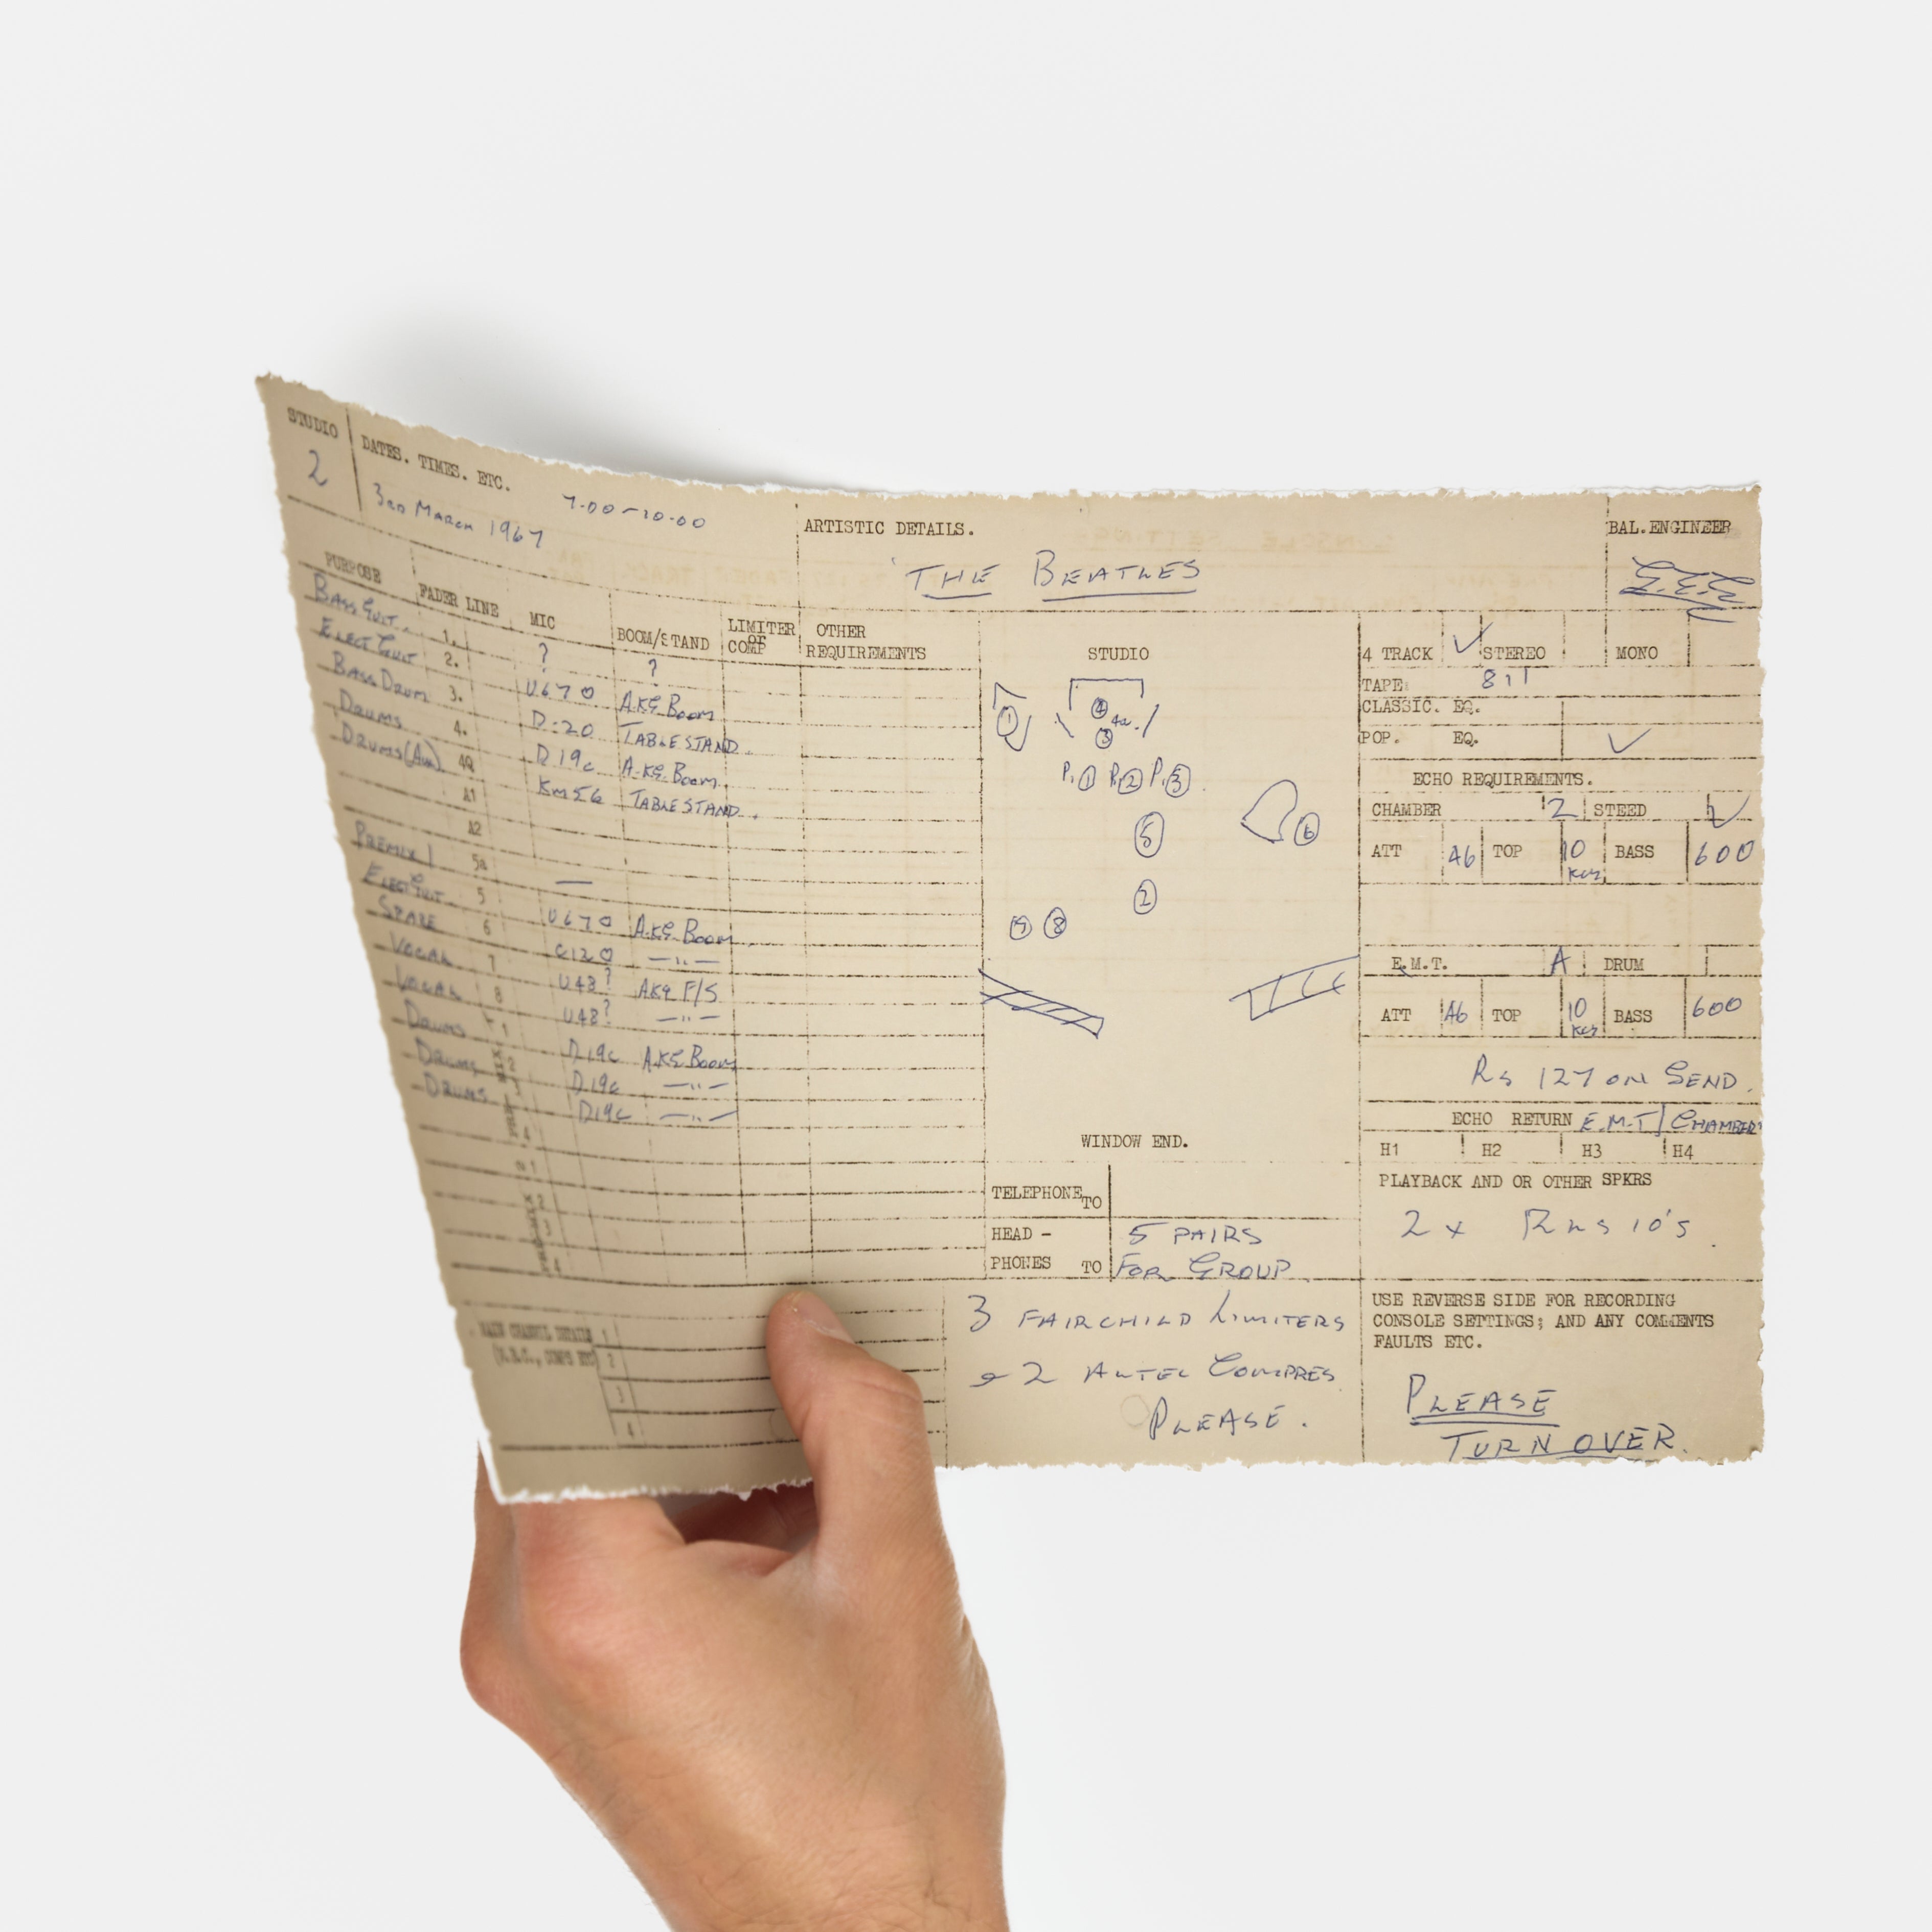 STUDIO
2
DATES. TIMES. ETC.
3RD MARCH 1967 7.00-10.00
ARTISTIC DETAILS.
THE BEATLES
BAL.ENGINEER
G.E.E
PURPOSE FADER LINE MIC BOOM/STAND LIMITER OR COMP OTHER REQUIREMENTS
BASS GUIT. 1. ? ?
ELECT GUIT 2. U.67 0 A.K.G. BOOM
BASS DRUM 3. D-20 TABLE STAND.
DRUMS 4. D19c A.K.G. BOOM.
DRUMS 4A KM56 TABLE STAND.
A1
A2
PREMIX 1 5a —
ELECT GUIT 5 U67 0 A.K.G. BOOM
SPARE 6 C12 0 —"—
VOCAL 7 U48? AKG F/S
VOCAL 8 U48? —"—
DRUMS 1 D19c A.K.G BOOM
DRUMS 2 D19c —"—
DRUMS D19c —"—
MAIN CHANNEL DETAILS 1
2
3
4
STUDIO
1
4
4a.
3
P.1 P.2 P.3
5
6
2
7 8
WINDOW END.
TELEPHONE TO
HEAD -
PHONES TO
5 PAIRS
FOR GROUP
3 FAIRCHILD LIMITERS
& 2 ALTEC COMPRES
PLEASE.
4 TRACK ✓ STEREO MONO
TAPE 811
CLASSIC. EQ.
POP. EQ. ✓
ECHO REQUIREMENTS.
CHAMBER 2 STEED ✓
ATT 46 TOP 10 Kcs BASS 600
E.M.T. A DRUM
ATT 46 TOP 10 Kcs BASS 600
RS 127 ON SEND.
ECHO RETURN E.M.T/ CHAMBER
H1 H2 H3 H4
PLAYBACK AND OR OTHER SPKRS
2 x RLS 10's.
USE REVERSE SIDE FOR RECORDING
CONSOLE SETTINGS; AND ANY COMMENTS
FAULTS ETC.
PLEASE
TURN OVER.